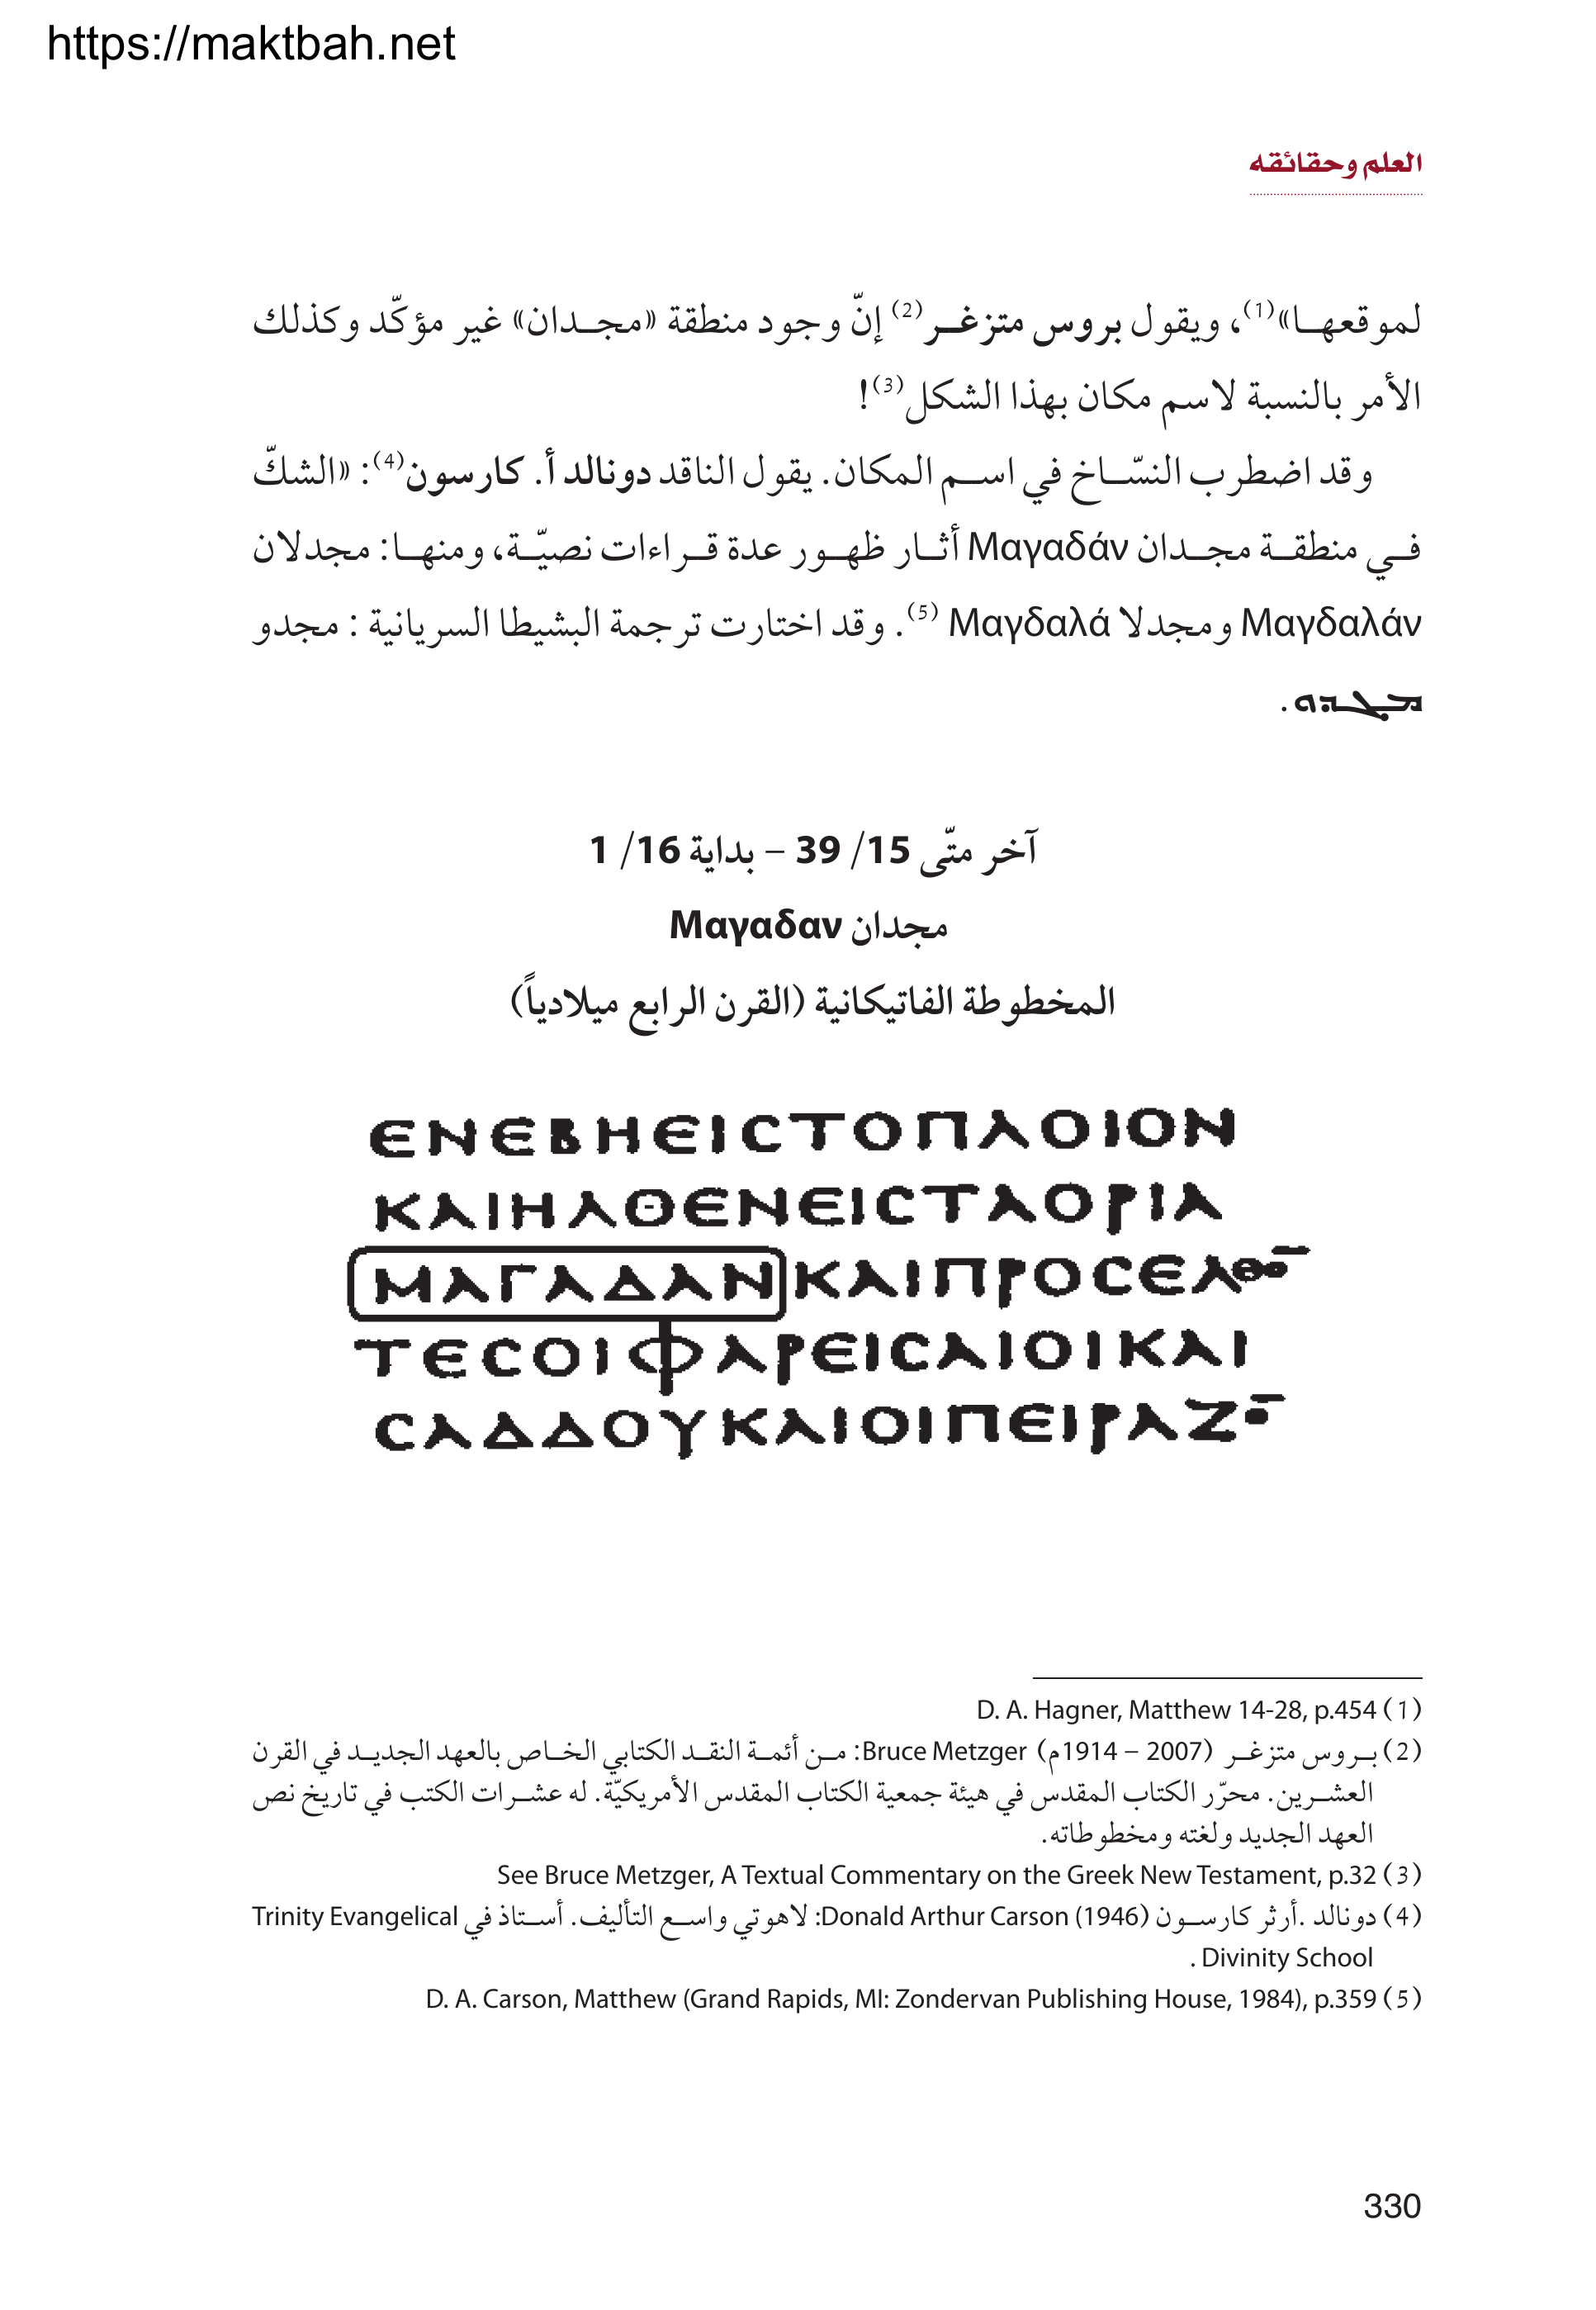 https://maktbah.net
العلم وحقائقه
لموقعهـا»(1)، ويقول بروس متزغـر(2) إنّ وجود منطقة «مجـدان» غير مؤكّد وكذلك
الأمر بالنسبة لاسم مكان بهذا الشكل(3)!
وقد اضطرب النسّـاخ في اسـم المكان. يقول الناقد دونالد أ. كارسون(4): «الشكّ
فـي منطقـة مجـدان Μαγαδάν أثـار ظهـور عدة قـراءات نصيّـة، ومنهـا: مجدلان
Μαγδαλάν ومجدلا Μαγδαλά (5). وقد اختارت ترجمة البشيطا السريانية : مجدو
ܡܓܕܘ .
آخر متّى 15/ 39 – بداية 16/ 1
مجدان Μαγαδαν
المخطوطة الفاتيكانية (القرن الرابع ميلادياً)
ΕΝΕΒΗΕΙϹΤΟΠΛΟΙΟΝ
ΚΑΙΗΛΘΕΝΕΙϹΤΑΟΡΙΑ
ΜΑΓΑΔΑΝΚΑΙΠΡΟϹΕΛΘΟ̅
ΤΕϹΟΙΦΑΡΕΙϹΑΙΟΙΚΑΙ
ϹΑΔΔΟΥΚΑΙΟΙΠΕΙΡΑΖΟ̅
(1) D. A. Hagner, Matthew 14-28, p.454
(2) بـروس متزغـر Bruce Metzger (1914 – 2007م): مـن أئمـة النقـد الكتابي الخـاص بالعهد الجديـد في القرن
العشـرين. محرّر الكتاب المقدس في هيئة جمعية الكتاب المقدس الأمريكيّة. له عشـرات الكتب في تاريخ نص
العهد الجديد ولغته ومخطوطاته.
(3) See Bruce Metzger, A Textual Commentary on the Greek New Testament, p.32
(4) دونالد .أرثر كارسـون Donald Arthur Carson (1946): لاهوتي واسـع التأليف. أسـتاذ في Trinity Evangelical
Divinity School .
(5) D. A. Carson, Matthew (Grand Rapids, MI: Zondervan Publishing House, 1984), p.359
330